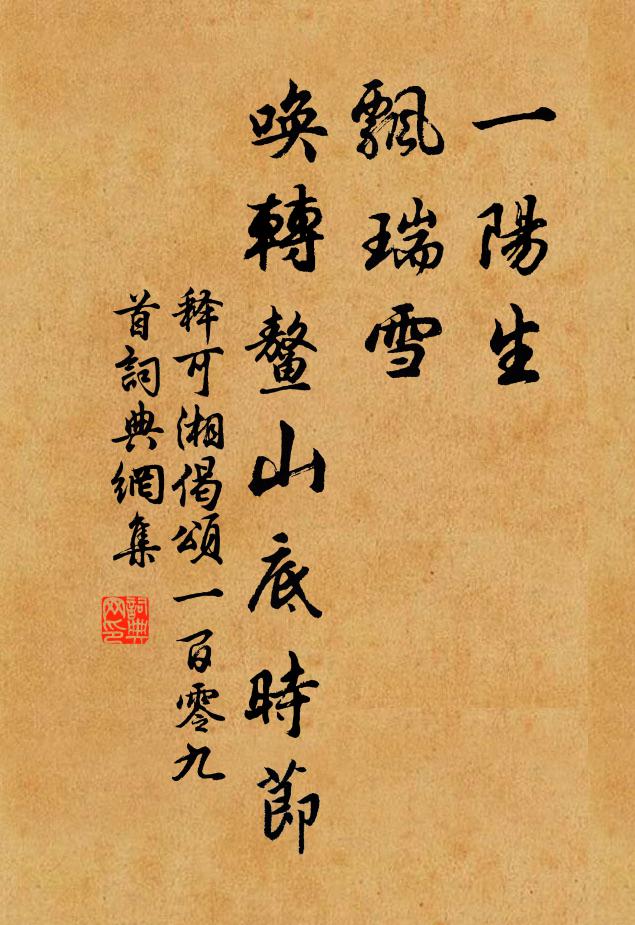 一陽生
飄瑞雪
喚轉鰲山底時節
釋可湘偈頌一百零九
首詞典網集
詞典
网印